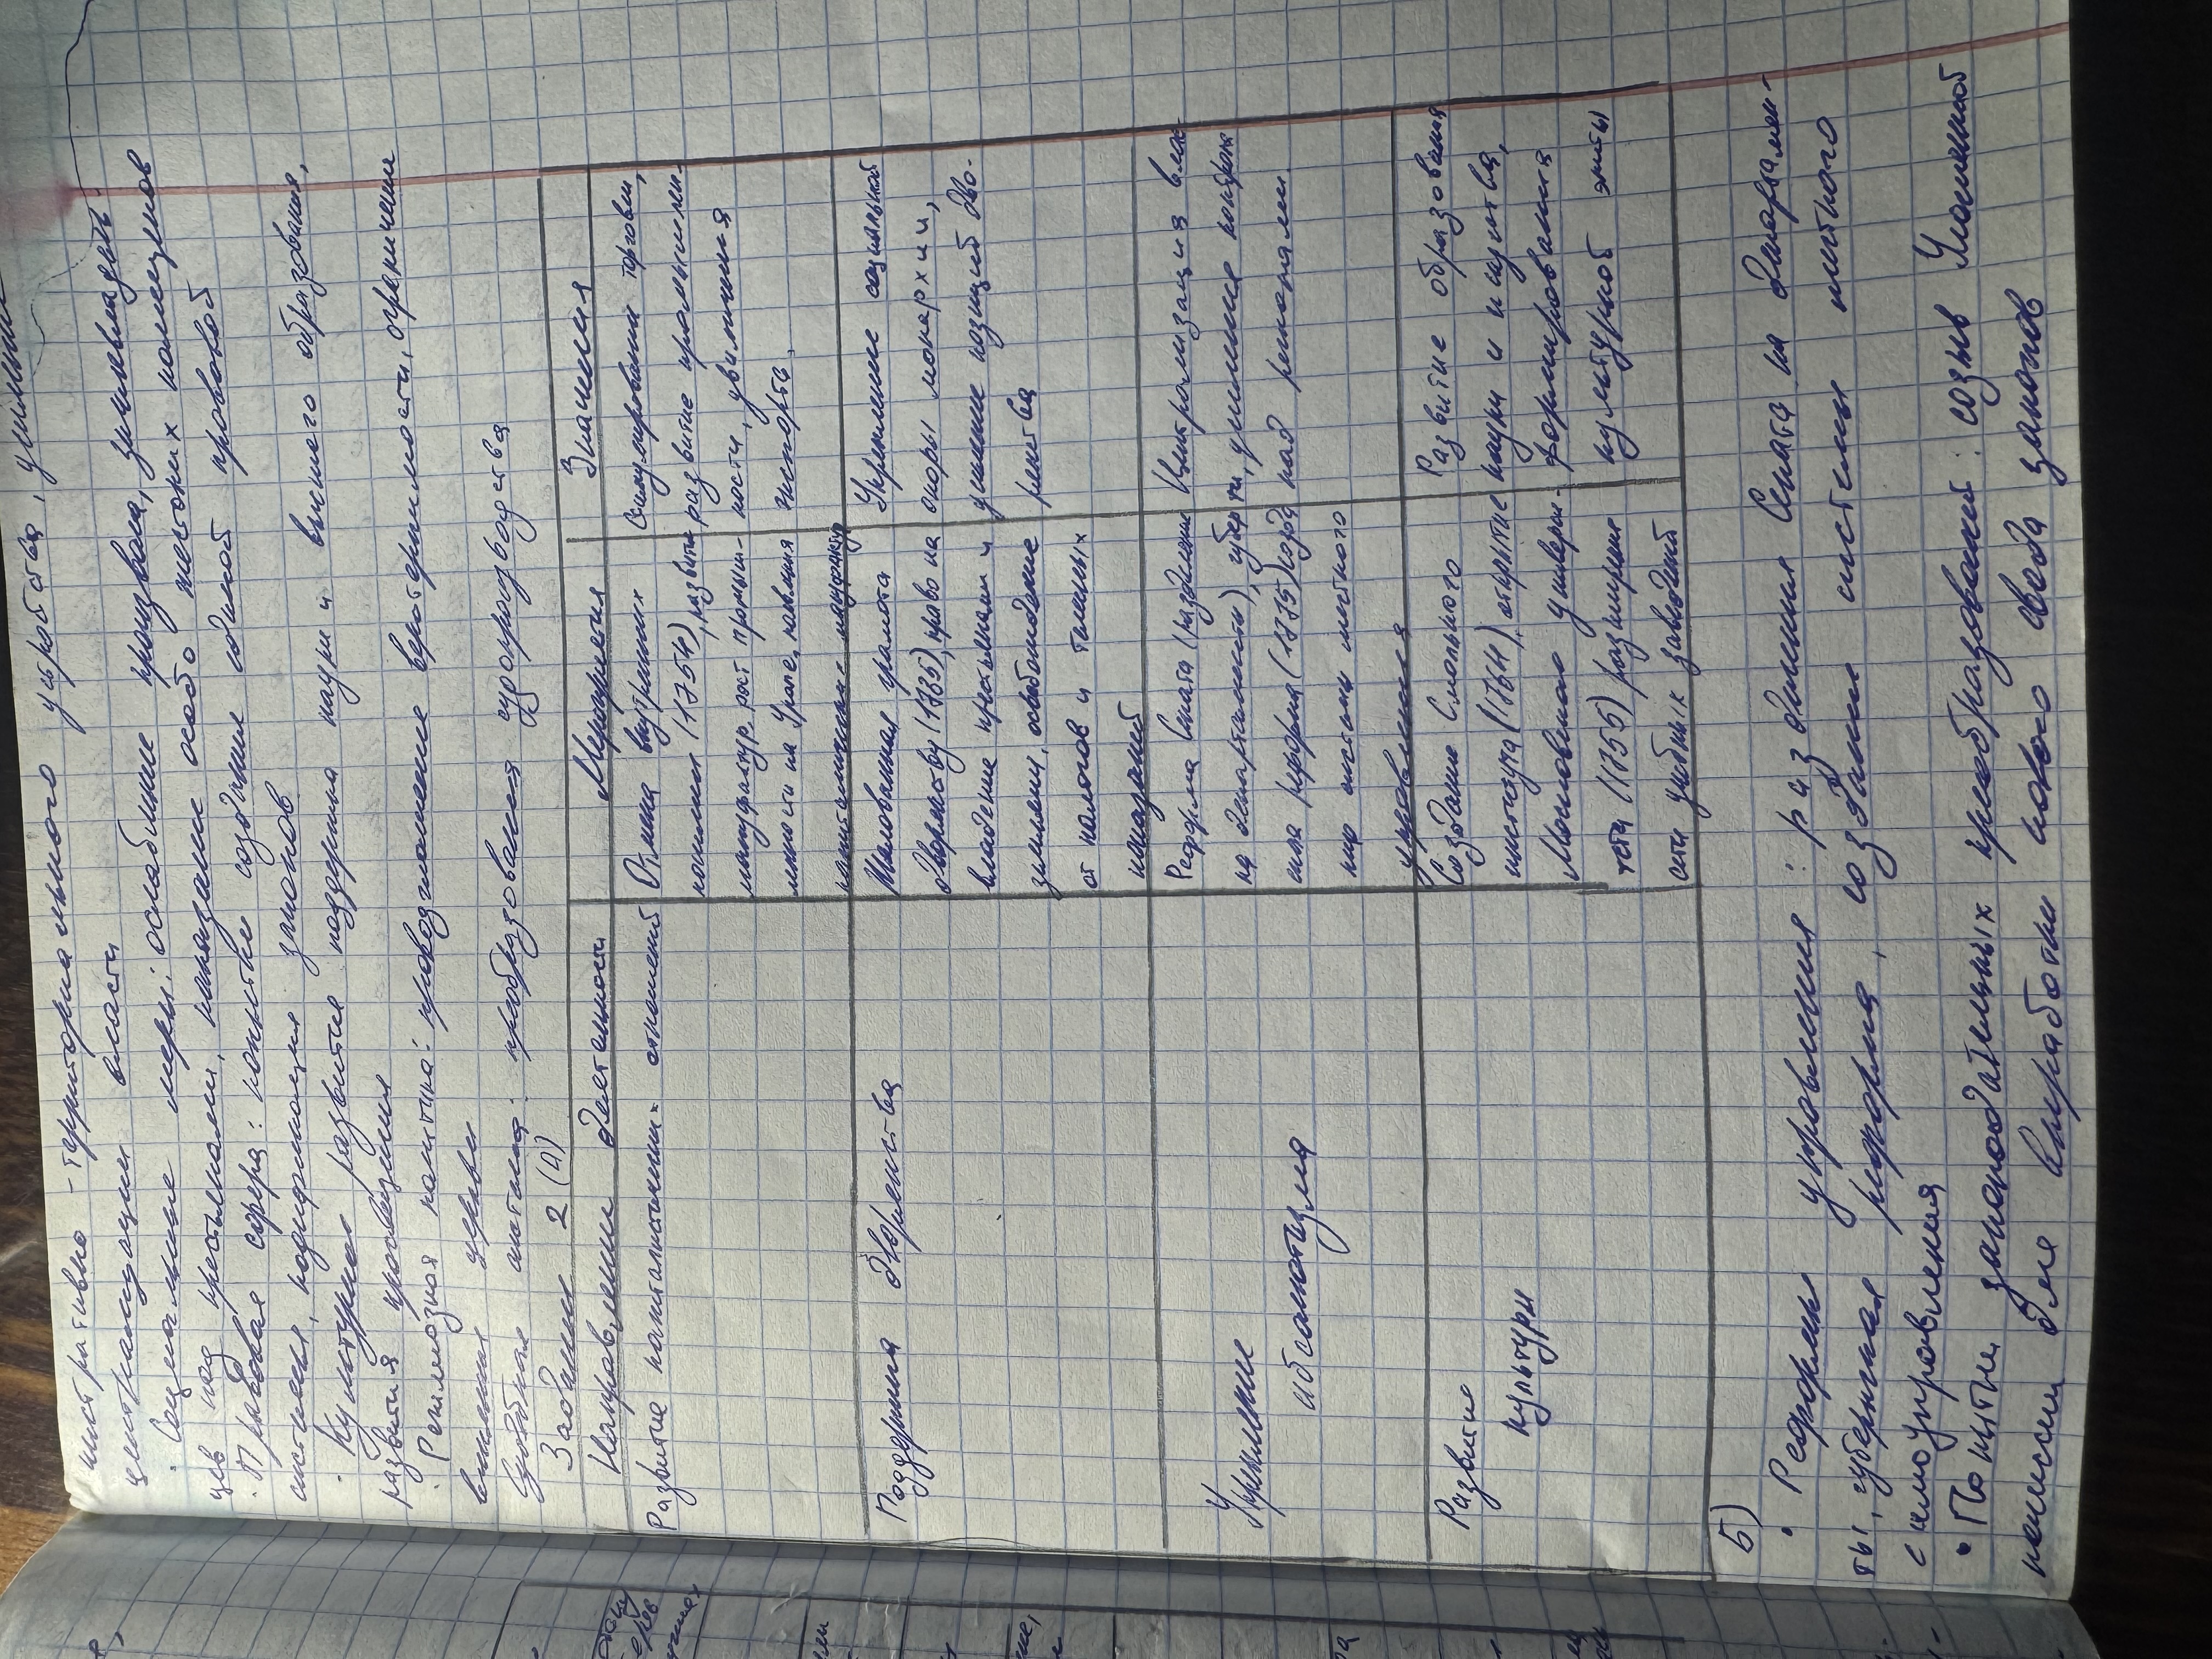 нистративно - территориального устройства, усиление
централизации власти
· Социальные меры: ослабление произвола, землевладель-
цев над крестьянами, наказание особо жестоких помещиков
· Правовая сфера: попытки создания единой правовой
системы, кодификация законов
· Культурное развитие поддержка науки и высшего образования,
развития просвещения
· Религиозная политика: провозглашение веротерпимости, ограничение
влияния церкви
Судебная система: преобразование судопроизводства
Задание 2 (А)
Направление деятельности Мероприятия Значения
Развитие капиталистических отношений
Отмена внутренних
пошлин (1754), развитие
мануфактур, рост промыш-
ленности на Урале, появления
капиталистических мануфактур
Стимулирование торговли,
развитие промышлен-
ности, увеличения
экспорта.
Поддержка дворянства
Жалованная грамота
дворянству (1785), право на
владение крестьянами и
землями, освобождение
от налогов и телесных
наказаний
Укрепление социальной
опоры монархии,
усиление позиций дво-
рянства
Укрепление
абсолютизма
Реформа Сената (разделение
на департаменты), губерн
ская реформа (1775) созда
ние системы местного
управления
Централизация влас-
ти, усиление контроля
над регионами.
Развитие
культуры
Создание Смольного
института (1764), открытие
Московского универси-
тета (1755) расширение
сети учебных заведений
Развитие образования
науки и искусства,
формирования
культурной элиты
5)
· Реформы управления : разделения Сената на департамен-
ты, губернская реформа, создание системы местного
самоуправления
· Попытки законодательных преобразований: созыв Уложенной
комиссии для выработки нового свода законов